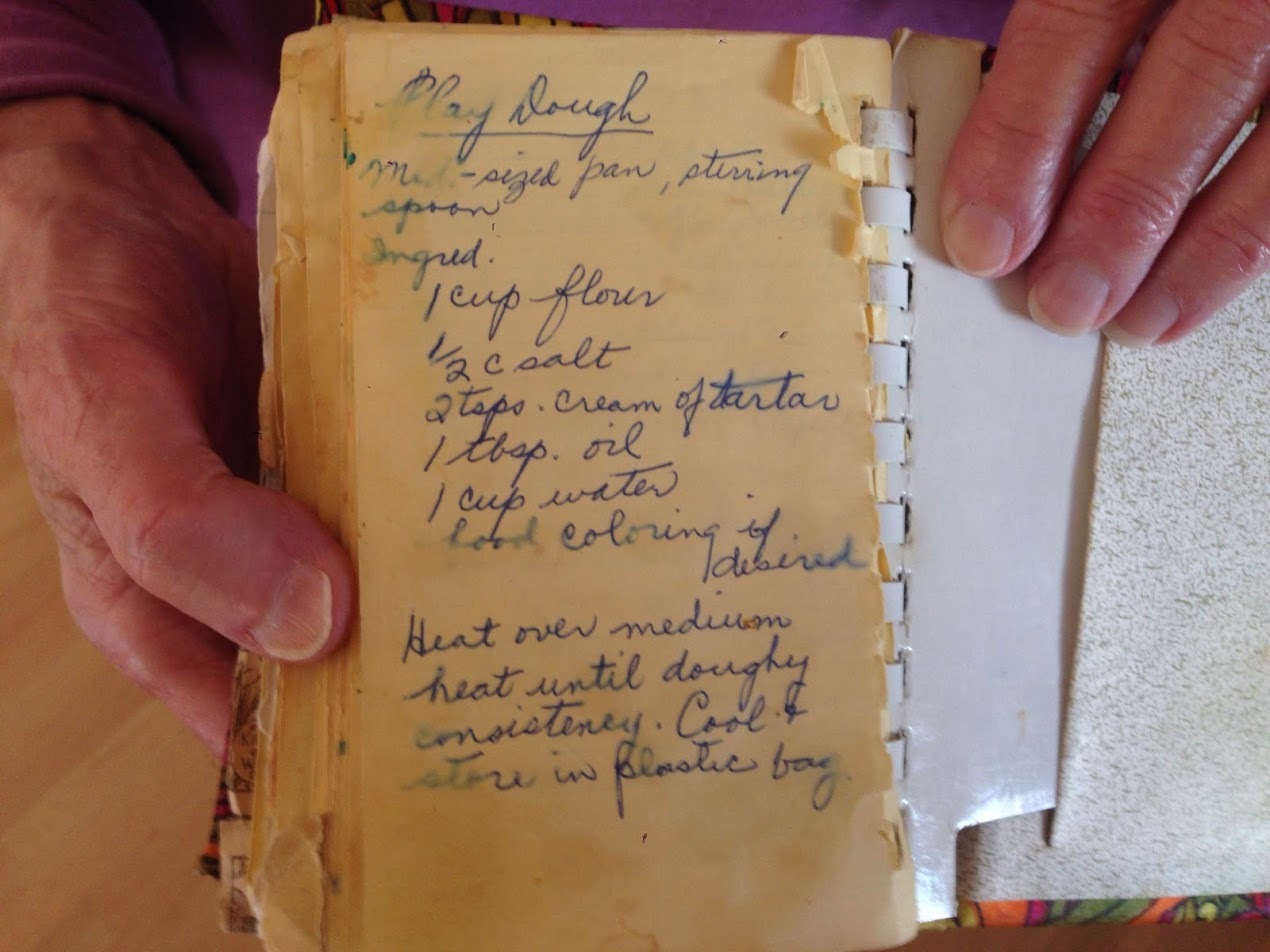 Play Dough
Med.-sized pan, stirring
spoon
Ingred.
1 cup flour
1/2 c salt
2 tsps. cream of tartar
1 tbsp. oil
1 cup water
food coloring if
desired
Heat over medium
heat until doughy
consistency. Cool &
store in plastic bag.